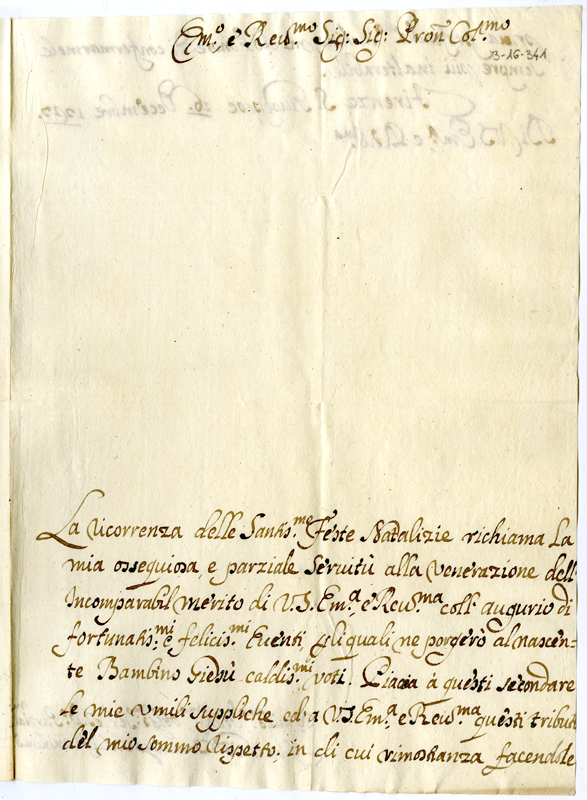 Em.º e Reu.mo Sig: Sig: Pron Col.mo
B-16-341
La ricorrenza delle Santis.me Feste Natalizie richiama La
mia ossequiosa, e parziale Seruitù alla venerazione dell'
Incomparabil merito di V.S. Em.a, e Reu.ma coll' augurio di
fortunatis.mi e felicis.mi Euenti, p li quali ne porgerò al nascen=
te Bambino Giesù caldis.mi voti. Piacia à questi secondare
le mie vmili suppliche ed a V.S. Em.a e Reu.ma questi tributi
del mio sommo rispetto. in di cui rimostranza facendole